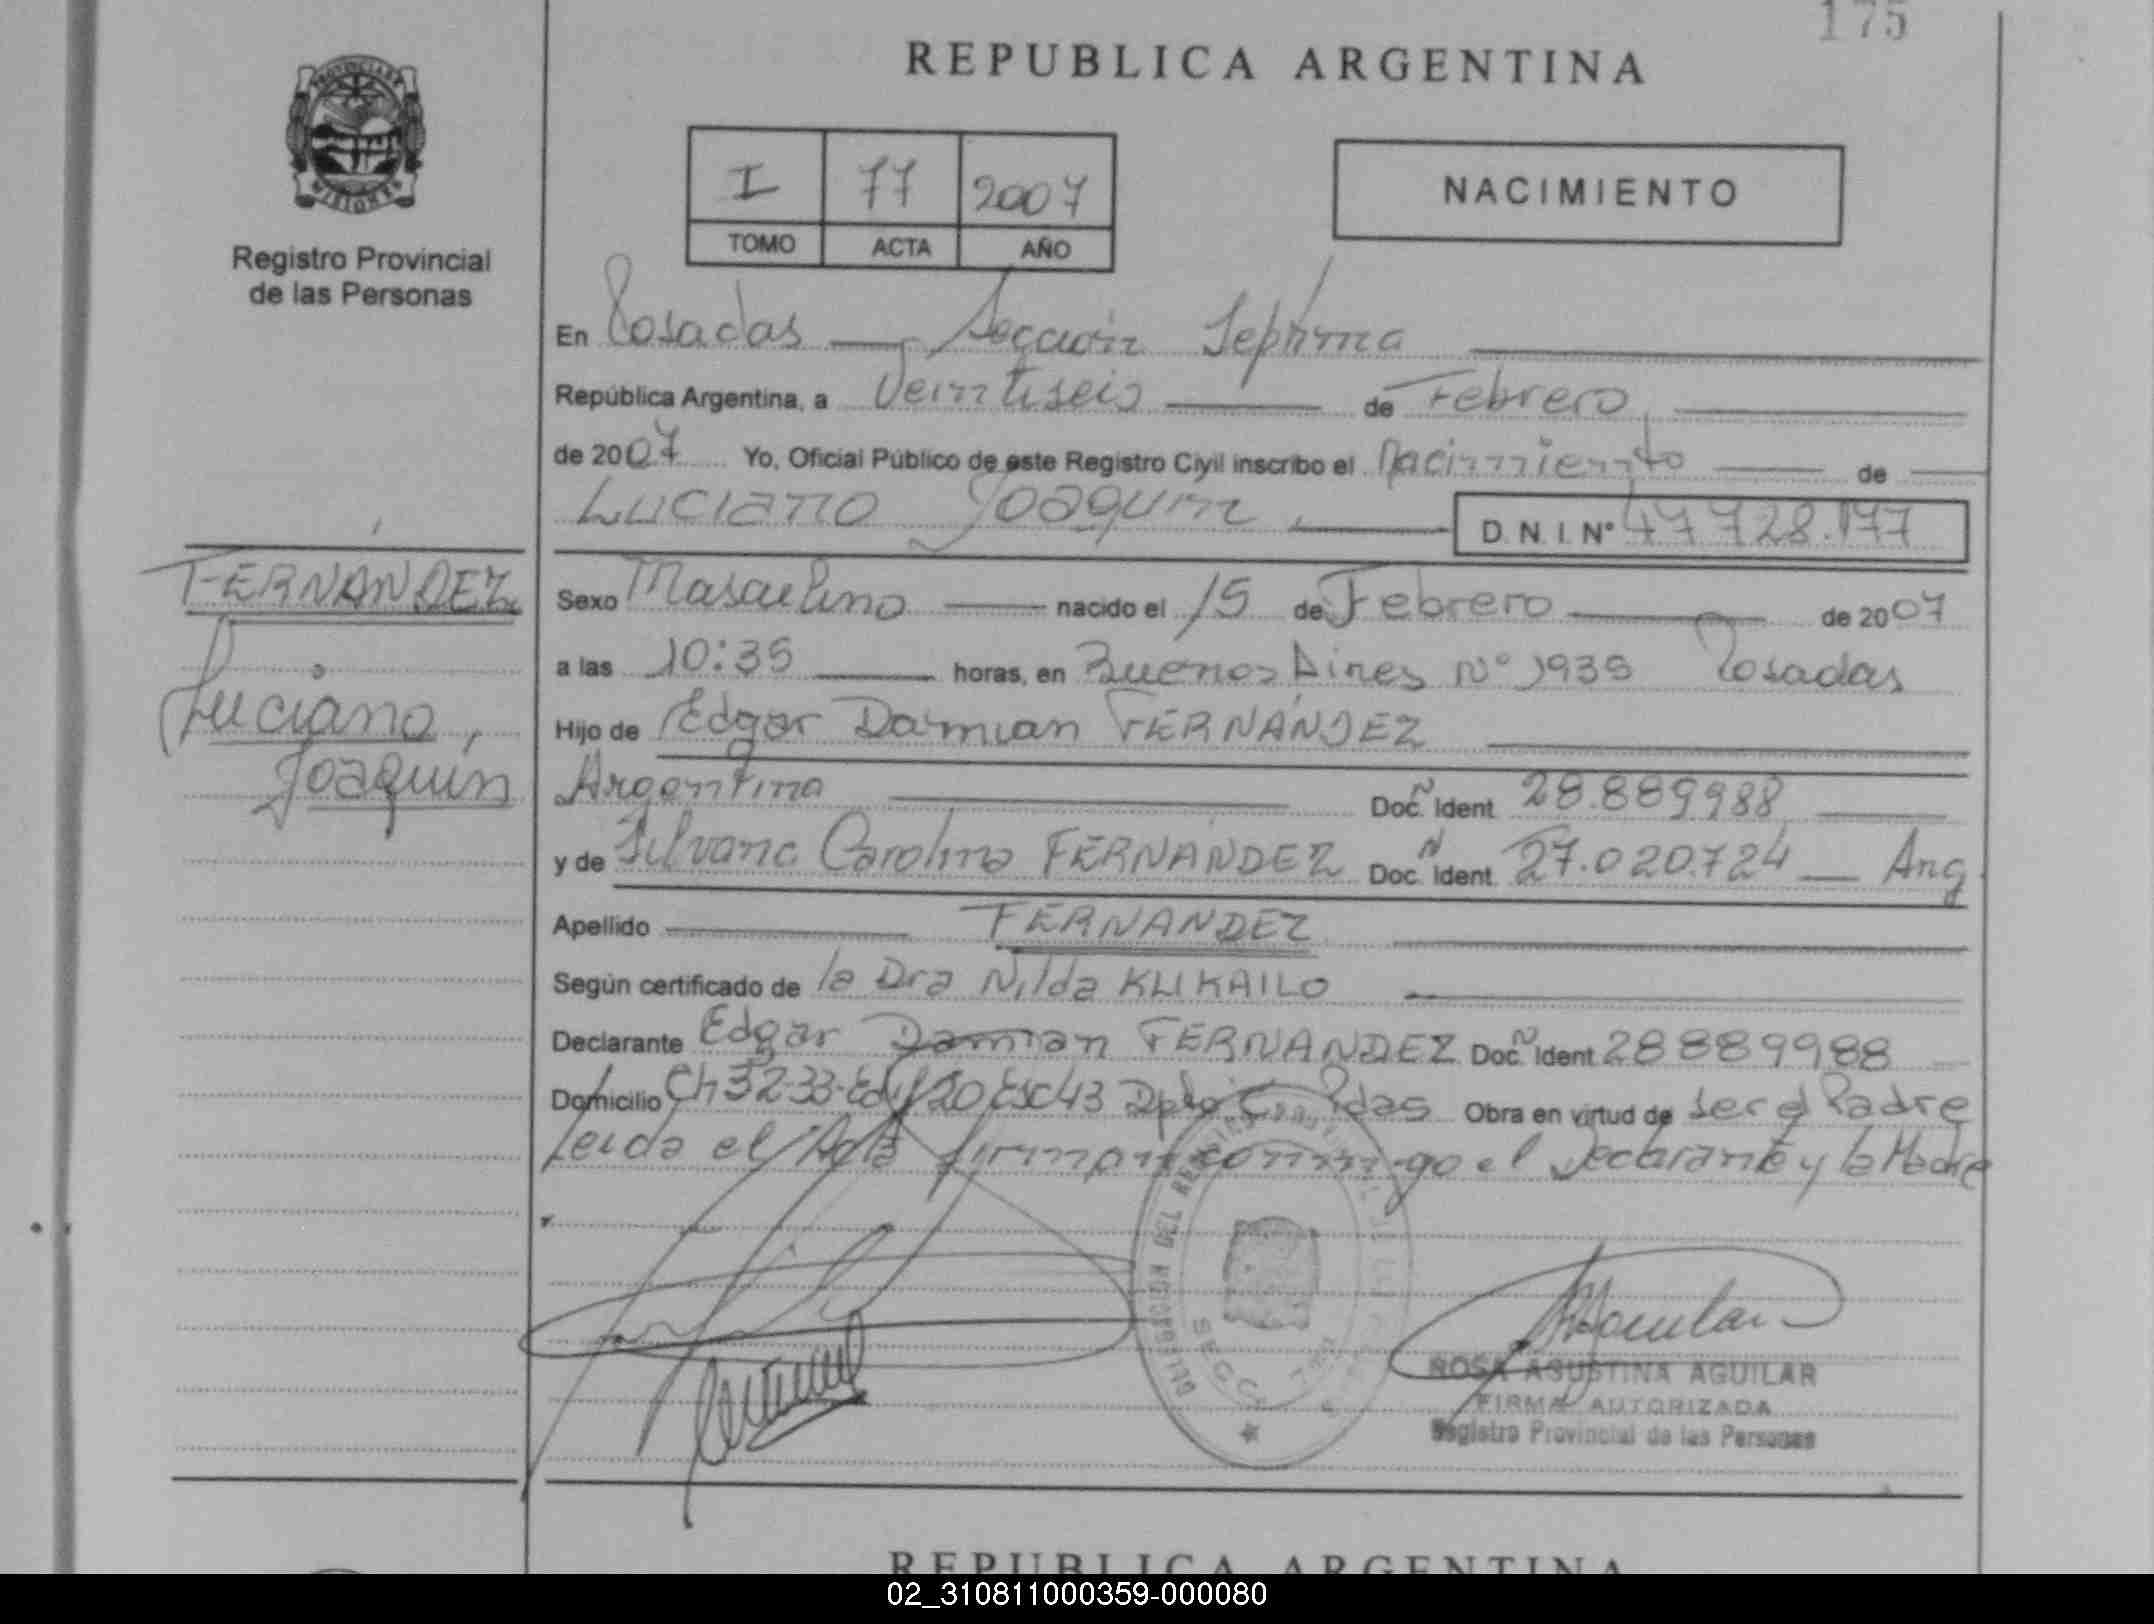 175
REPUBLICA ARGENTINA
PROVINCIA DE
MISIONES
Registro Provincial
de las Personas
I 77 2007
TOMO ACTA AÑO
NACIMIENTO
En Posadas Sección Septima
República Argentina, a Veintiseis de Febrero
de 2007 Yo, Oficial Público de este Registro Civil inscribo el Nacimiento de
Luciano Joaquin D.N.I. N° 47728.177
FERNÁNDEZ
Luciano,
Joaquín
Sexo Masculino nacido el 15 de Febrero de 2007
a las 10:35 horas, en Buenos Aires N° 1935 Posadas
Hijo de Edgar Damian FERNÁNDEZ
Argentina Doc. Ident 28.889988
y de Silvana Carolina FERNANDEZ Doc. Ident. 27.020.724 Arg
Apellido FERNANDEZ
Según certificado de la Dra Nilda KLIKAILO
Declarante Edgar Damian FERNANDEZ Doc. Ident 28889988
Domicilio Ch 32-33-Edif 20 Esc 43 Dpto C Pdas Obra en virtud de ser el Padre
Leida el Acta firman conmigo el Declarante y la Madre
ROSA AGUSTINA AGUILAR
FIRMA AUTORIZADA
Registro Provincial de las Personas
REPUBLICA ARGENTINA
02_310811000359-000080